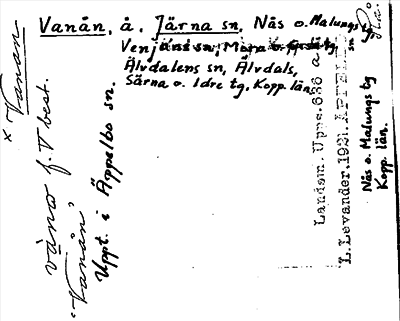 Vanån, å. Järna sn, Nås o. Malungs tg,
Venjans sn, Mora o. Orsa tg,
Älvdalens sn, Älvdals,
Särna o. Idre tg, Kopp. län.
× Vanan
våno f. V best.
'Vanån'
Uppt. i Äppelbo sn.
Landsm. Upps. 636 a
L. Levander, 1921. ÄPPELBO
Nås o. Malungs tg
Kopp. län.